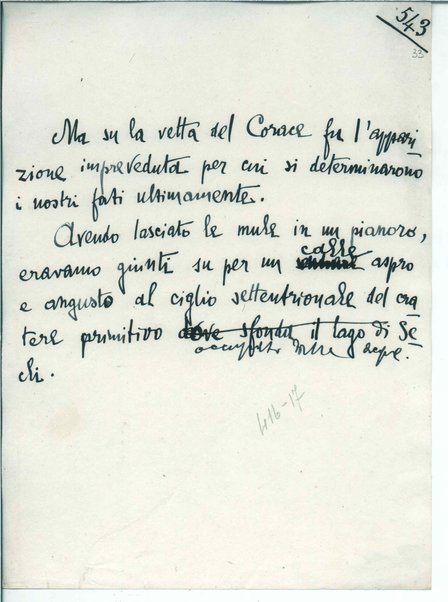 543
33
Ma su la vetta del Corace fu l'appari
zione impreveduta per cui si determinarono
i nostri fati ultimamente.
Avendo lasciato le mule in un pianoro,
calle
eravamo giunti su per un aspro
e angusto al ciglio settentrionale del cra
tere primitivo dove sfonda il lago di Se
occupato dalle acque.
chi.
416-17